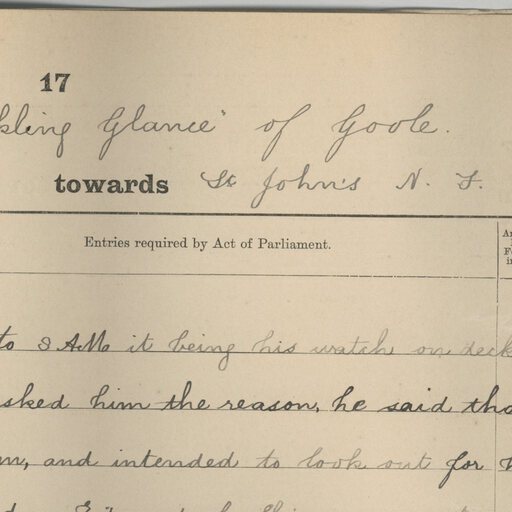 17
kling Glance" of Goole.
towards St John's N. F.
Entries required by Act of Parliament.
to 8 AM it being his watch on deck
sked him the reason, he said tha
m, and intended to look out for